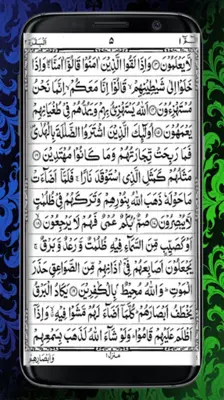 الٓمّٓ ١ ٥ الْبَقَرَة ٢
لَّا يَعْلَمُوْنَ ۝ وَاِذَا لَقُوا الَّذِيْنَ اٰمَنُوْا قَالُوْٓا اٰمَنَّا ۖ وَاِذَا
خَلَوْا اِلٰى شَيٰطِيْنِهِمْ ۙ قَالُوْٓا اِنَّا مَعَكُمْ ۙ اِنَّمَا نَحْنُ
مُسْتَهْزِءُوْنَ ۝ اَللّٰهُ يَسْتَهْزِئُ بِهِمْ وَيَمُدُّهُمْ فِيْ طُغْيَانِهِمْ
يَعْمَهُوْنَ ۝ اُولٰٓئِكَ الَّذِيْنَ اشْتَرَوُا الضَّلٰلَةَ بِالْهُدٰى ۖ
فَمَا رَبِحَتْ تِّجَارَتُهُمْ وَمَا كَانُوْا مُهْتَدِيْنَ ۝
مَثَلُهُمْ كَمَثَلِ الَّذِى اسْتَوْقَدَ نَارًا ۚ فَلَمَّآ اَضَآءَتْ
مَا حَوْلَهٗ ذَهَبَ اللّٰهُ بِنُوْرِهِمْ وَتَرَكَهُمْ فِيْ ظُلُمٰتٍ
لَّا يُبْصِرُوْنَ ۝ صُمٌّۢ بُكْمٌ عُمْيٌ فَهُمْ لَا يَرْجِعُوْنَ ۝
اَوْ كَصَيِّبٍ مِّنَ السَّمَآءِ فِيْهِ ظُلُمٰتٌ وَّرَعْدٌ وَّبَرْقٌ ۚ
يَجْعَلُوْنَ اَصَابِعَهُمْ فِيْٓ اٰذَانِهِمْ مِّنَ الصَّوَاعِقِ حَذَرَ
الْمَوْتِ ؕ وَاللّٰهُ مُحِيْطٌۢ بِالْكٰفِرِيْنَ ۝ يَكَادُ الْبَرْقُ
يَخْطَفُ اَبْصَارَهُمْ ؕ كُلَّمَآ اَضَآءَ لَهُمْ مَّشَوْا فِيْهِ ۙ وَاِذَآ
اَظْلَمَ عَلَيْهِمْ قَامُوْا ؕ وَلَوْ شَآءَ اللّٰهُ لَذَهَبَ بِسَمْعِهِمْ
منزل ١
وَاَبْصَارِهِمْ